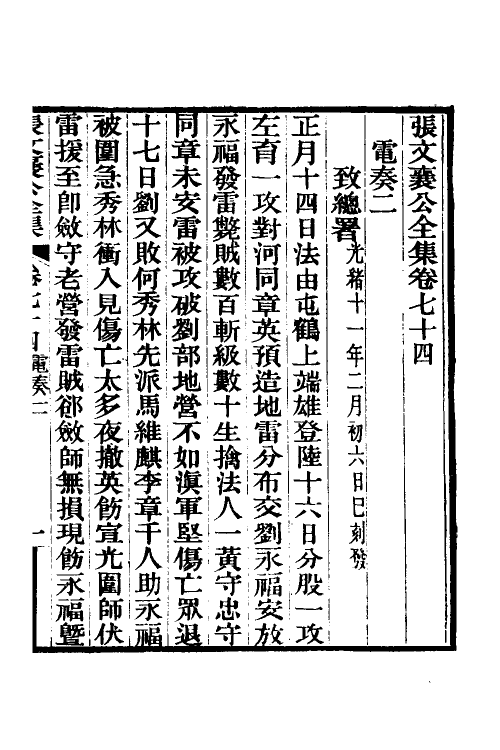 張文襄公全集卷七十四
電奏二
致總署光緒十一年二月初六日巳刻發
正月十四日法由屯鶴上端雄登陸十六日分股一攻
左育一攻對河同章英預造地雷分布交劉永福安放
永福發雷斃賊數百斬級數十生擒法人一黃守忠守
同章未安雷被攻破劉部地營不如滇軍堅傷亡眾退
十七日劉又敗何秀林先派馬維麒李章千人助永福
被圍急秀林衝入見傷亡太多夜撤英飭宣光圍師伏
雷援至卽斂守老營發雷賊郤斂師無損現飭永福曁
張文襄公全集 卷七十四 電奏二 一